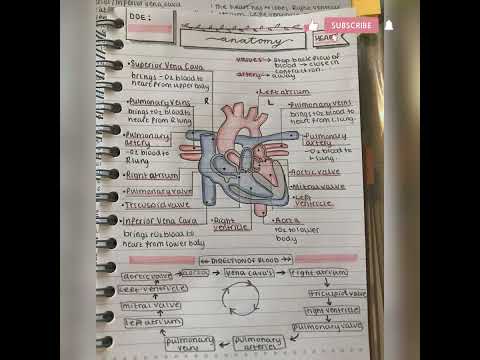 The heart has
DOE:
SUBSCRIBE
anatomy
HEART
valves → stop backflow of
blood → close in
contraction
artery → away
• Superior Vena Cava
brings -O2 blood to
heart from upper body
• Left atrium
R
L
• Pulmonary veins
brings +O2 blood to
heart from R lung
• Pulmonary veins
brings +O2 blood to
heart from L lung
• Pulmonary
artery
-O2 blood to
R lung
Pulmonary
artery
-O2 blood to
L lung
• Right atrium
• Aortic valve
• Pulmonary valve
• Mitral valve
• Tricuspid valve
• Left
ventricle
• Inferior Vena Cava
brings -O2 blood to
heart from lower body
• Right
ventricle
• Aorta
+O2 to lower
body
DIRECTION OF BLOOD
aortic valve → aorta → vena cava's → right atrium
left ventricle
tricuspid valve
mitral valve
right ventricle
left atrium
pulmonary valve
pulmonary
veins
pulmonary
arteries